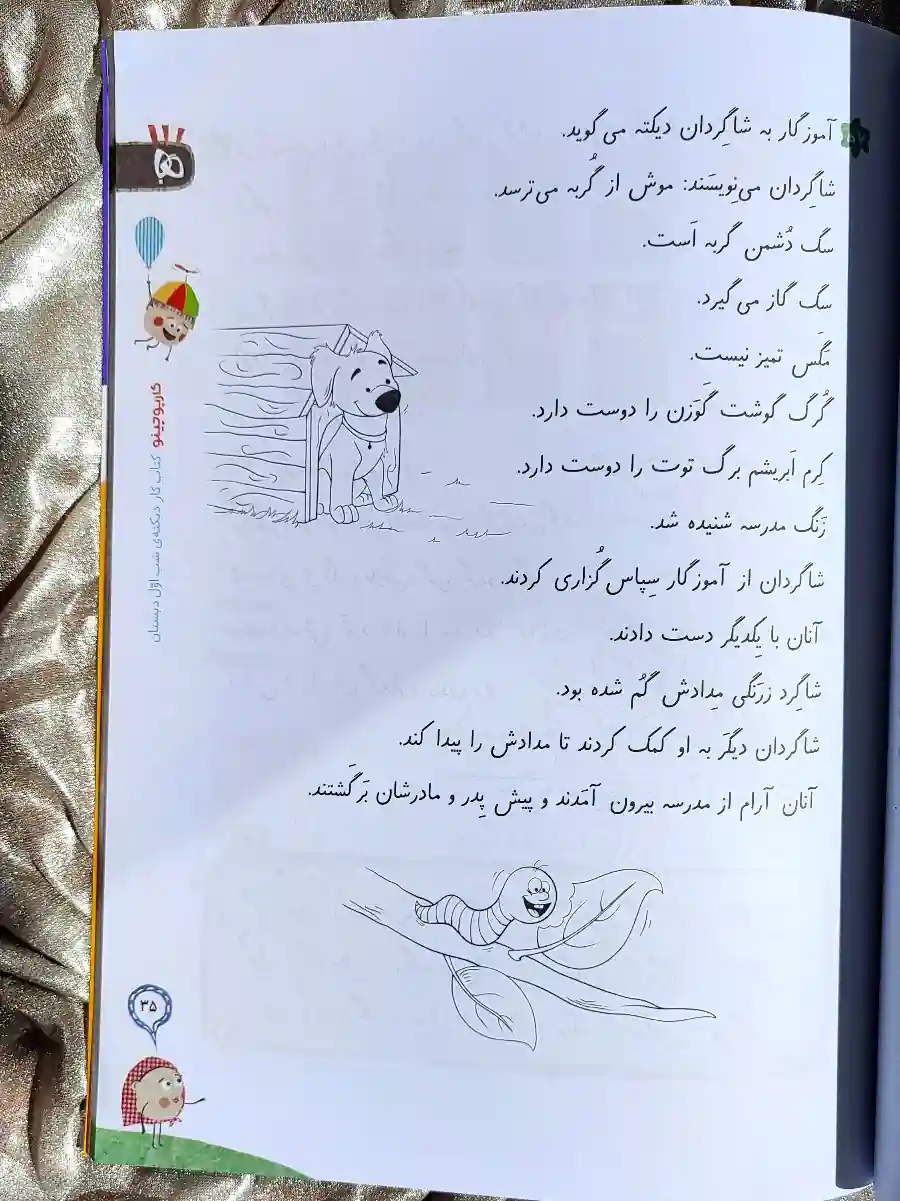 آموزگار به شاگِردان دیکته می گوید.
شاگِردان می‌نِویسَند: موش از گُربه می‌ترسد.
سگ دُشمن گربه اَست.
سگ گاز می گیرد.
مَگَس تمیز نیست.
گُرگ گوشت گَوَزن را دوست دارد.
کِرم اَبریشم برگ توت را دوست دارد.
زَنگ مدرسه شنیده شد.
شاگردان از آموزگار سِپاس گُزاری کردند.
آنان با یِکدیگر دست دادند.
شاگِرد زرَنگی مِدادش گُم شده بود.
شاگردان دیگَر به او کمک کردند تا مدادش را پیدا کند.
آنان آرام از مدرسه بیرون آمَدند و پیش پِدر و مادرشان بَرگَشتند.
کارپوچینو کتاب کار دیکته‌ی شب اوّل دبستان
۳۵